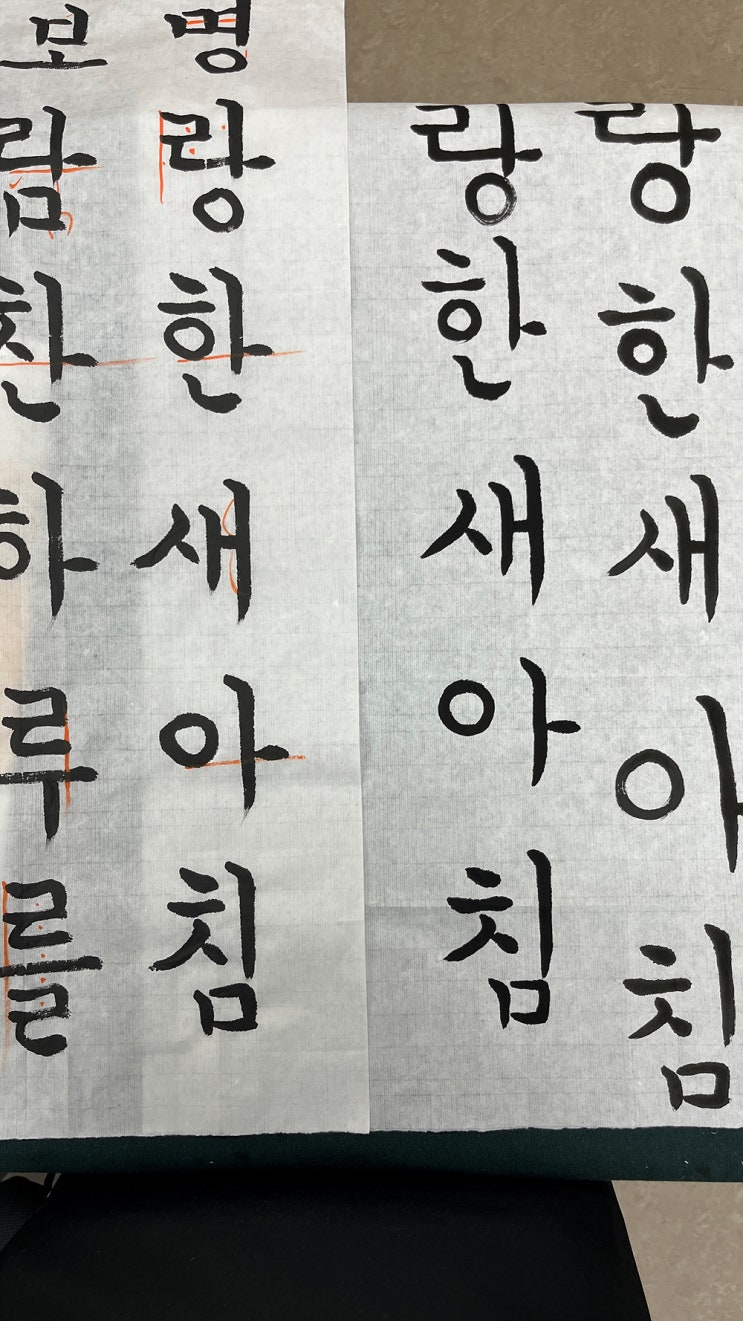 랑한새아침
랑한새아침
명랑한새아침
보람찬하루를